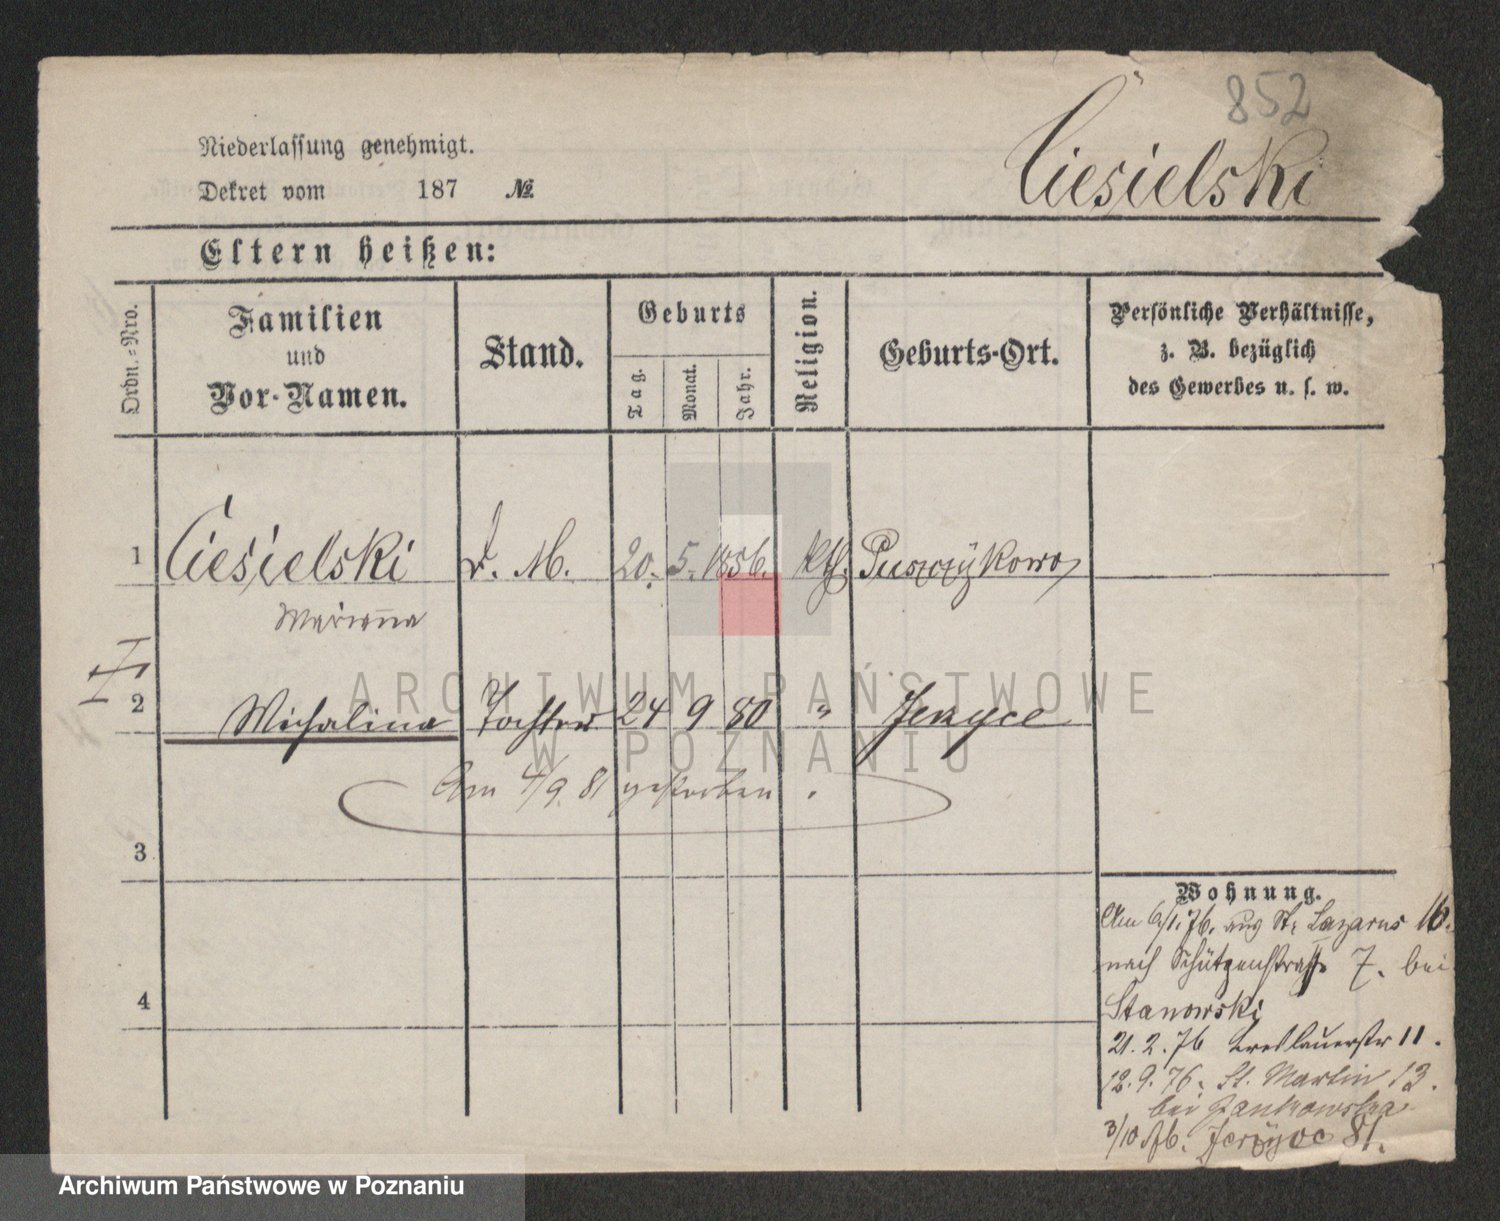 852
Ciesielski
Niederlassung genehmigt.
Dekret vom 187 №
Eltern heißen:
Ordn.-Nro.
Familien
und
Vor-Namen.
Stand.
Geburts
Tag.
Monat.
Jahr.
Religion.
Geburts-Ort.
Persönliche Verhältnisse,
z. B. bezüglich
des Gewerbes u. s. w.
1 Ciesielski D. M. 20. 5. 1856. kth. Puszczykowo
Marianna
2 Michalina Tochter 24 9 80 " Jerzyce
Am 4/9. 81 gestorben.
3
4
Wohnung.
Am 6/1. 76. aus St. Lazarus 16.
nach Schützenstraße 7. bei
Stanowski
21. 2. 76 Breslauerstr 11.
12. 9. 76. St. Martin 13.
bei Jankowska
3/10 76. Jerzyce 81.
ARCHIWUM PAŃSTWOWE
W POZNANIU
Archiwum Państwowe w Poznaniu